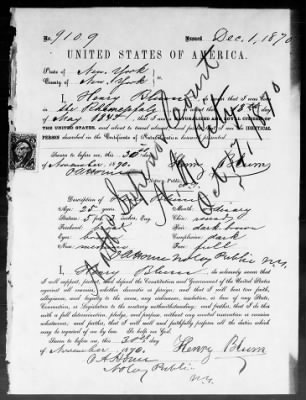 No. 9109 Issued Dec. 1, 1870
UNITED STATES OF AMERICA.
State of New York
County of New York } ss.
I, Henry Blum, do swear that I was born
in on or about the 18th day
of May 1845, that I am a NATURALIZED AND LOYAL CITIZEN OF
THE UNITED STATES, and about to travel abroad, and further that I am the IDENTICAL
PERSON described in the Certificate of Naturalization herewith presented.
Sworn to before me this 30th day
of November 1870. Henry Blum
Notary Public.
Description of Henry Blum
Age: 25 years Mouth: ordinary
Stature: 5 feet inches, Eng. Chin: round
Forehead: Hair: dark brown
Eyes: Complexion: dark
Nose: medium Face: full
Notary Public N.Y.
I, Henry Blum, do solemnly swear that
I will support, protect, and defend the Constitution and Government of the United States
against all enemies, whether domestic or foreign; and that I will bear true faith,
allegiance, and loyalty to the same, any ordinance, resolution, or law of any State,
Convention, or Legislature to the contrary notwithstanding; and further, that I do this
with a full determination, pledge, and purpose, without any mental reservation or evasion
whatsoever; and further, that I will well and faithfully perform all the duties which
may be required of me by law. So help me God.
Sworn to before me, this 30th day
of November, 1870. Henry Blum
Notary Public
N.Y.